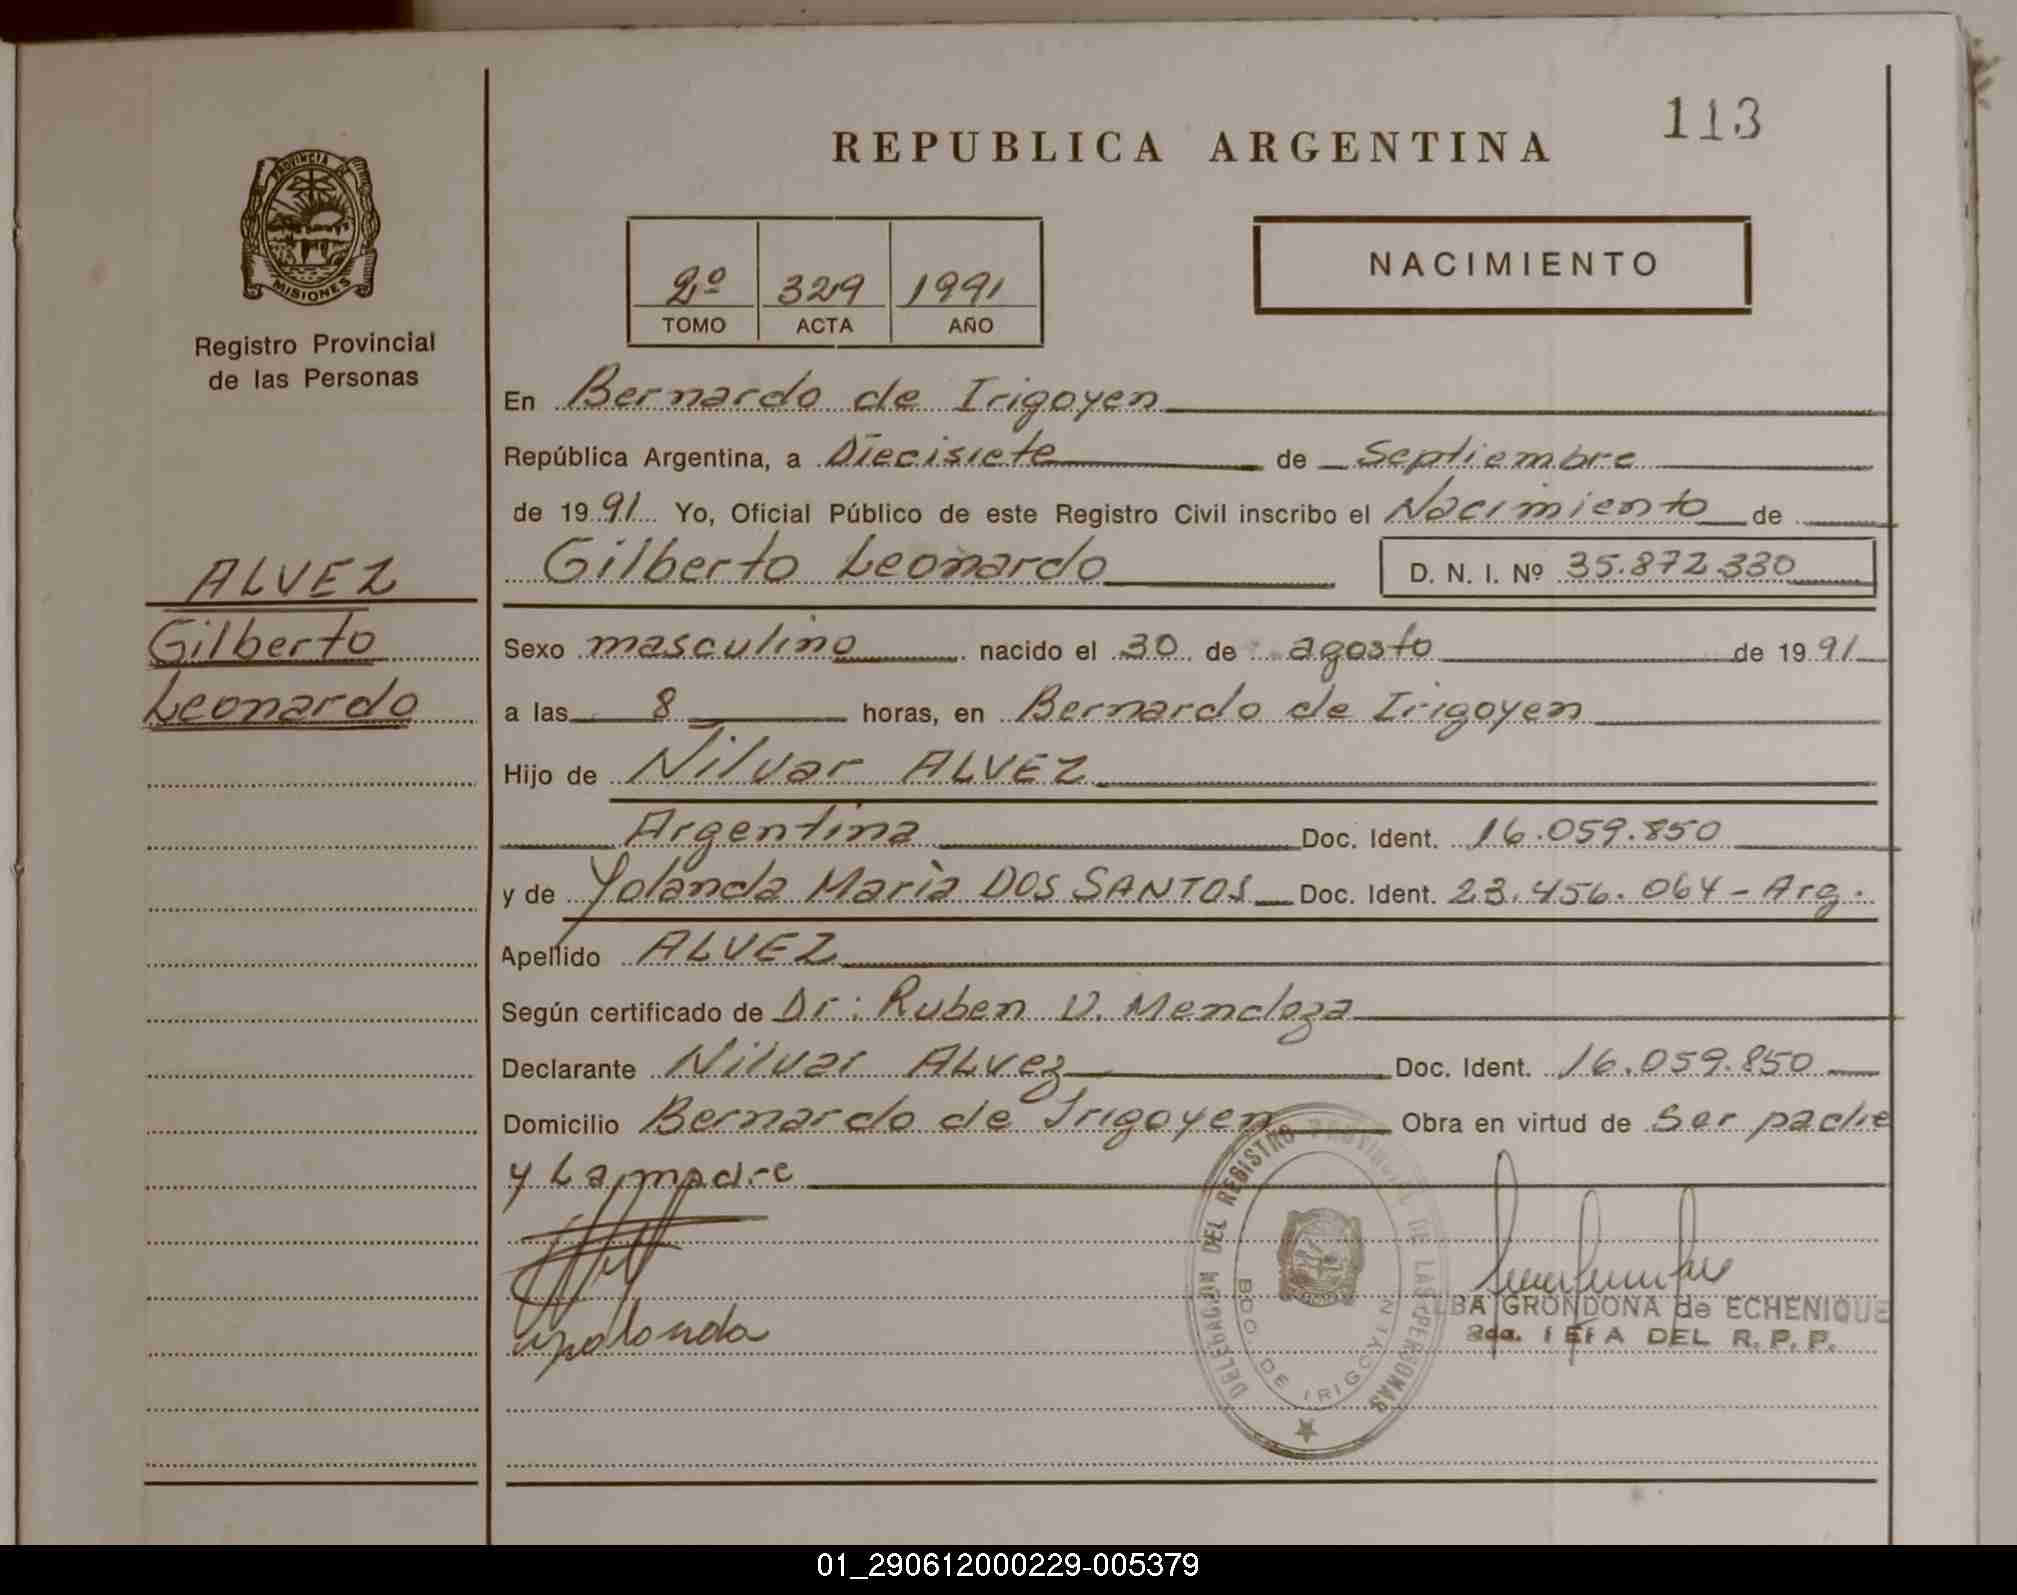 113
REPUBLICA ARGENTINA
PROVINCIA DE
MISIONES
Registro Provincial
de las Personas
2º 329 1991
TOMO ACTA AÑO
NACIMIENTO
En Bernardo de Irigoyen
República Argentina, a Diecisiete de Septiembre
de 1991 Yo, Oficial Público de este Registro Civil inscribo el Nacimiento de
Gilberto Leonardo D. N. I. Nº 35.872.330
ALVEZ
Gilberto
Leonardo
Sexo masculino nacido el 30 de agosto de 1991
a las 8 horas, en Bernardo de Irigoyen
Hijo de Nilvar ALVEZ
Argentina Doc. Ident. 16.059.850
y de Yolanda Marìa DOS SANTOS Doc. Ident. 23.456.064 - Arg.
Apellido ALVEZ
Según certificado de Dr: Ruben V. Mendoza
Declarante Nilvar ALVEZ Doc. Ident. 16.059.850
Domicilio Bernardo de Irigoyen Obra en virtud de Ser padre
y La madre
DELEGACION DEL REGISTRO PROVINCIAL DE LAS PERSONAS
BDO. DE IRIGOYEN
LBA GRONDONA de ECHENIQUE
2da. JEFA DEL R. P. P.
yolanda
01_290612000229-005379